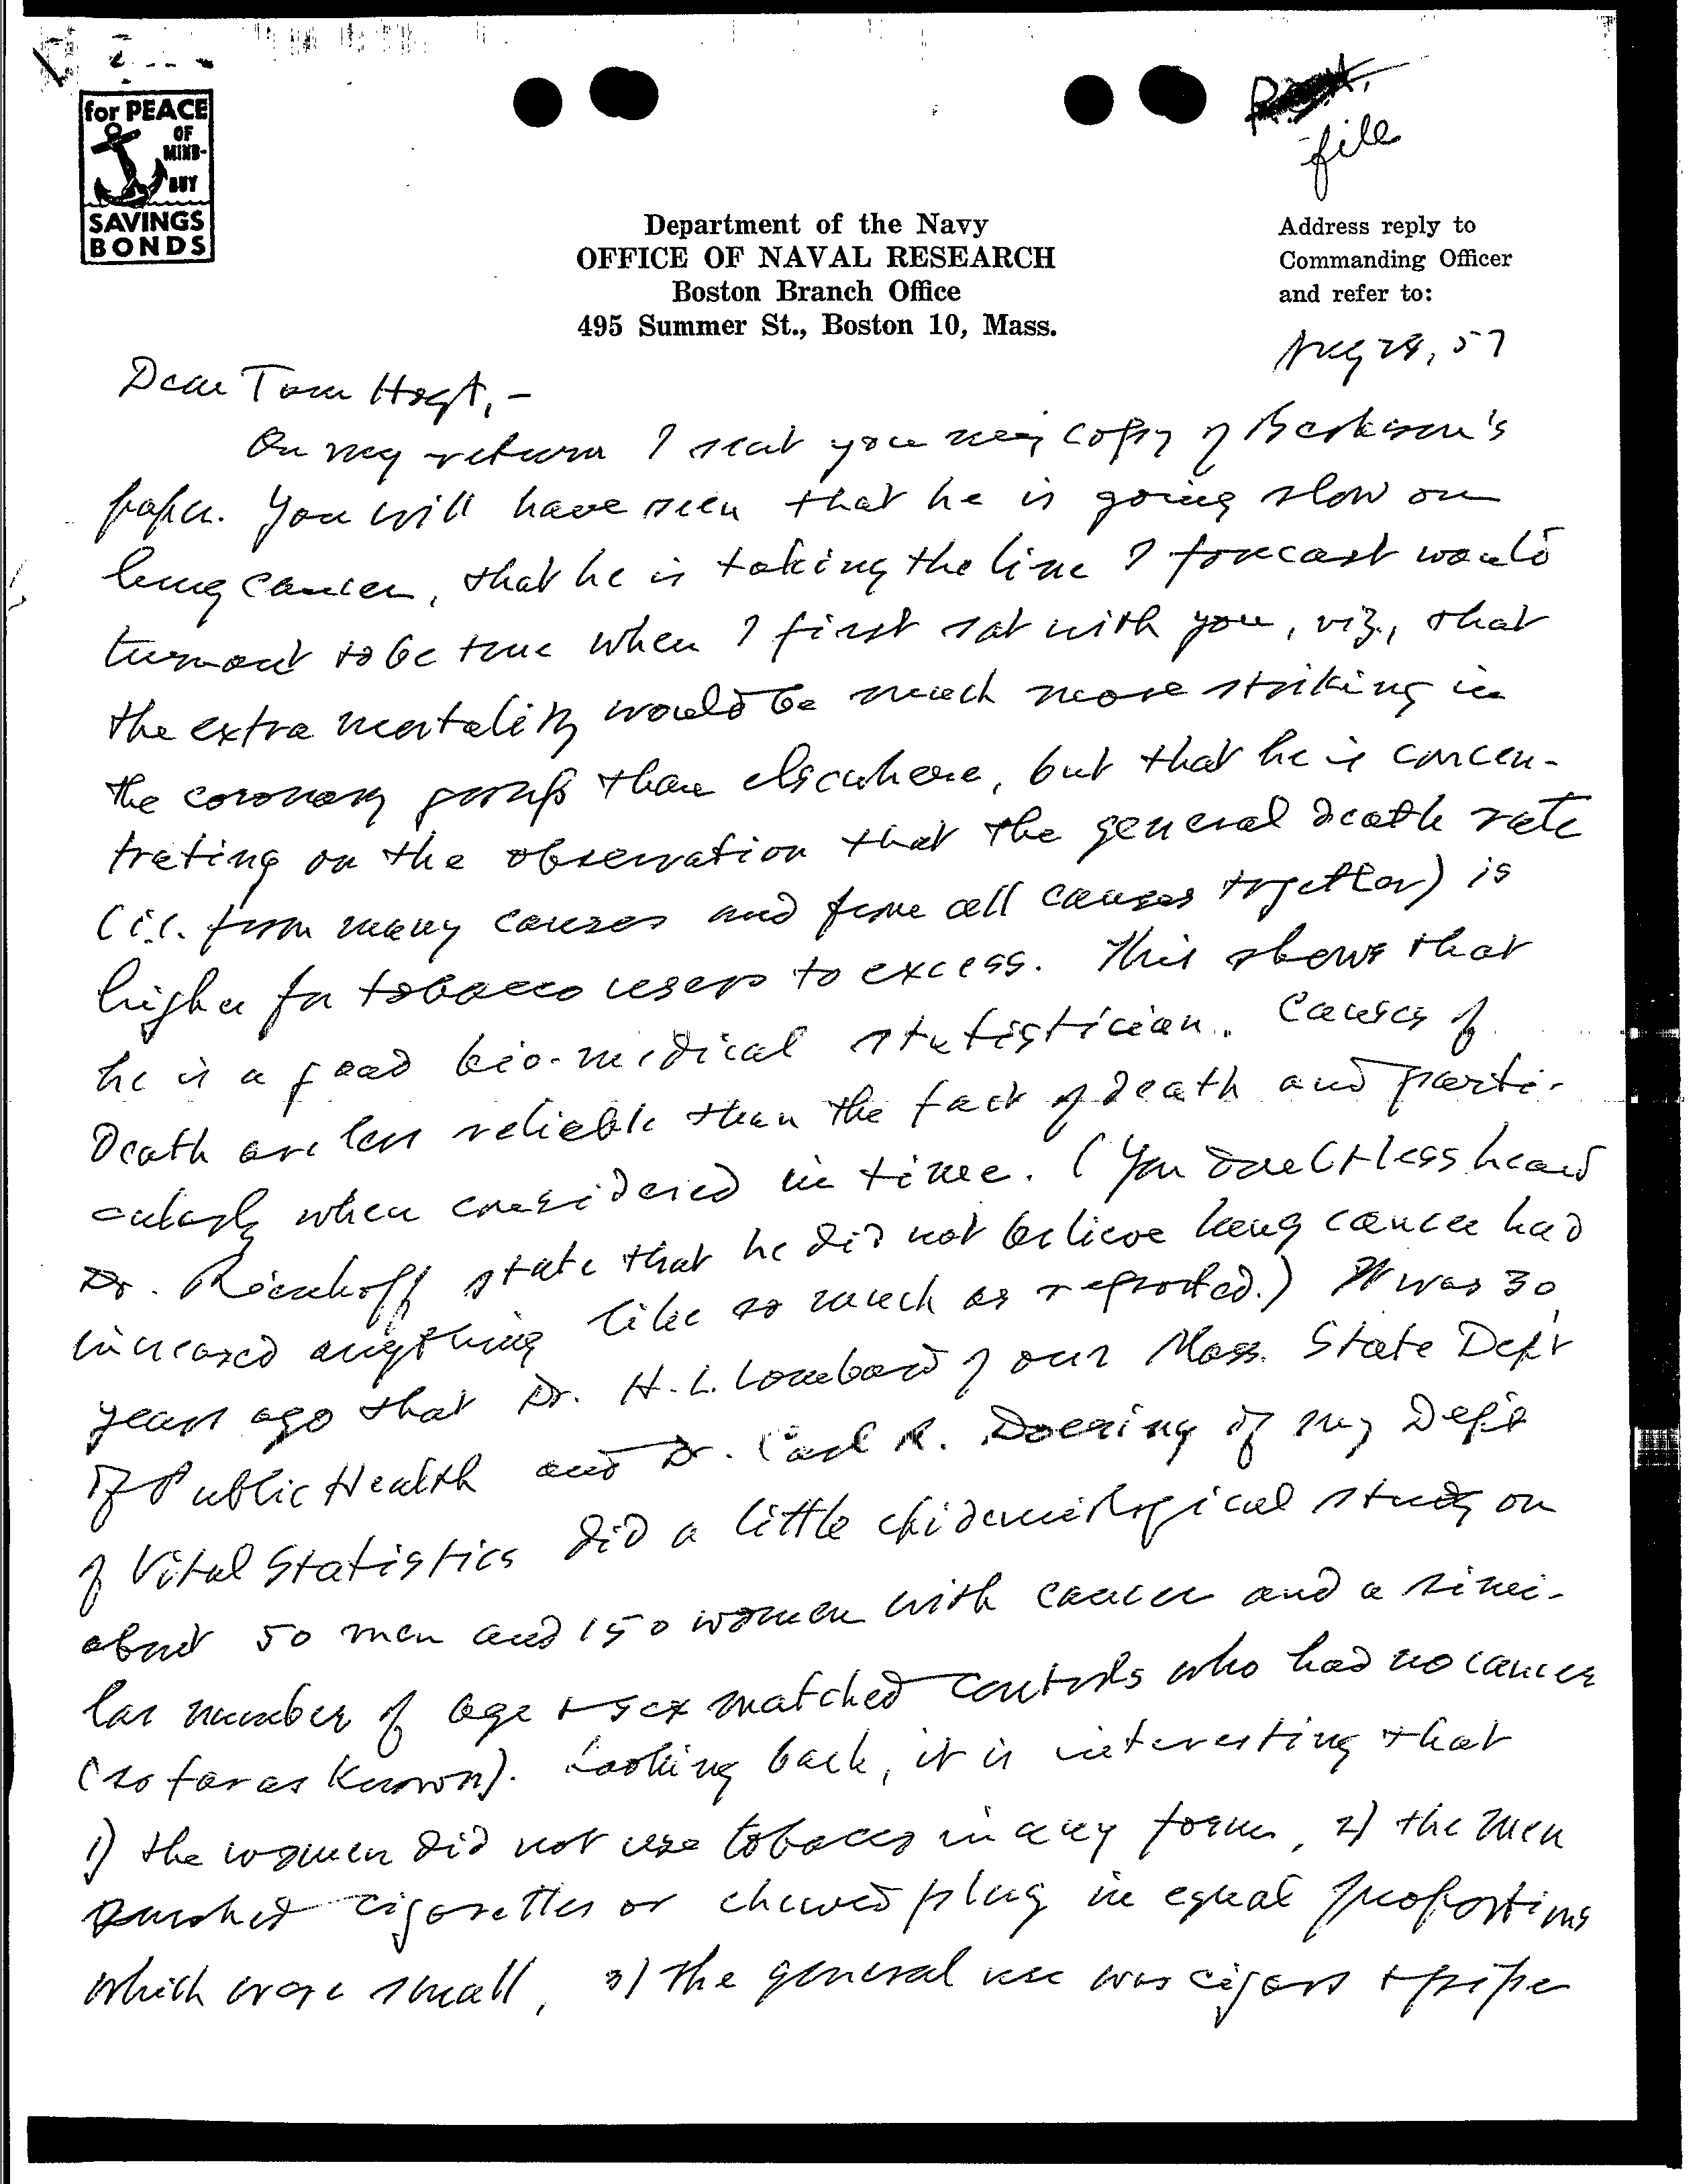 for PEACE
OF
MIND-
BUY
SAVINGS
BONDS
file
Department of the Navy
OFFICE OF NAVAL RESEARCH
Boston Branch Office
495 Summer St., Boston 10, Mass.
Address reply to
Commanding Officer
and refer to:
Aug 28, 57
Dear Tom Hoyt, -
On my return I sent you my copy of Berkson's
paper. You will have seen that he is going slow on
lung cancer, that he is taking the line I forecast would
turn out to be true when I first sat with you, viz, that
the extra mortality would be much more striking in
the coronary group than elsewhere, but that he is concen-
trating on the observation that the general death rate
(i.e. from many causes and from all causes together) is
higher for tobacco users to excess. This shows that
he is a good bio-medical statistician. Causes of
Death are less reliable than the fact of death and parti-
cularly when considered in time. (You doubtless heard
Dr. Rienhoff state that he did not believe lung cancer had
increased anything like so much as reported.) It was 30
years ago that Dr. H. L. Lombard of our Mass. State Dep't
of Public Health and Dr. Carl R. Doering of my Dep't
of Vital Statistics did a little epidemiological study on
about 50 men and 150 women with cancer and a simi-
lar number of age + sex matched controls who had no cancer
(so far as known). Looking back, it is interesting that
1) the women did not use tobacco in any form, 2) the men
smoked cigarettes or chewed plug in equal proportions
which were small, 3) the general use was cigars + pipe